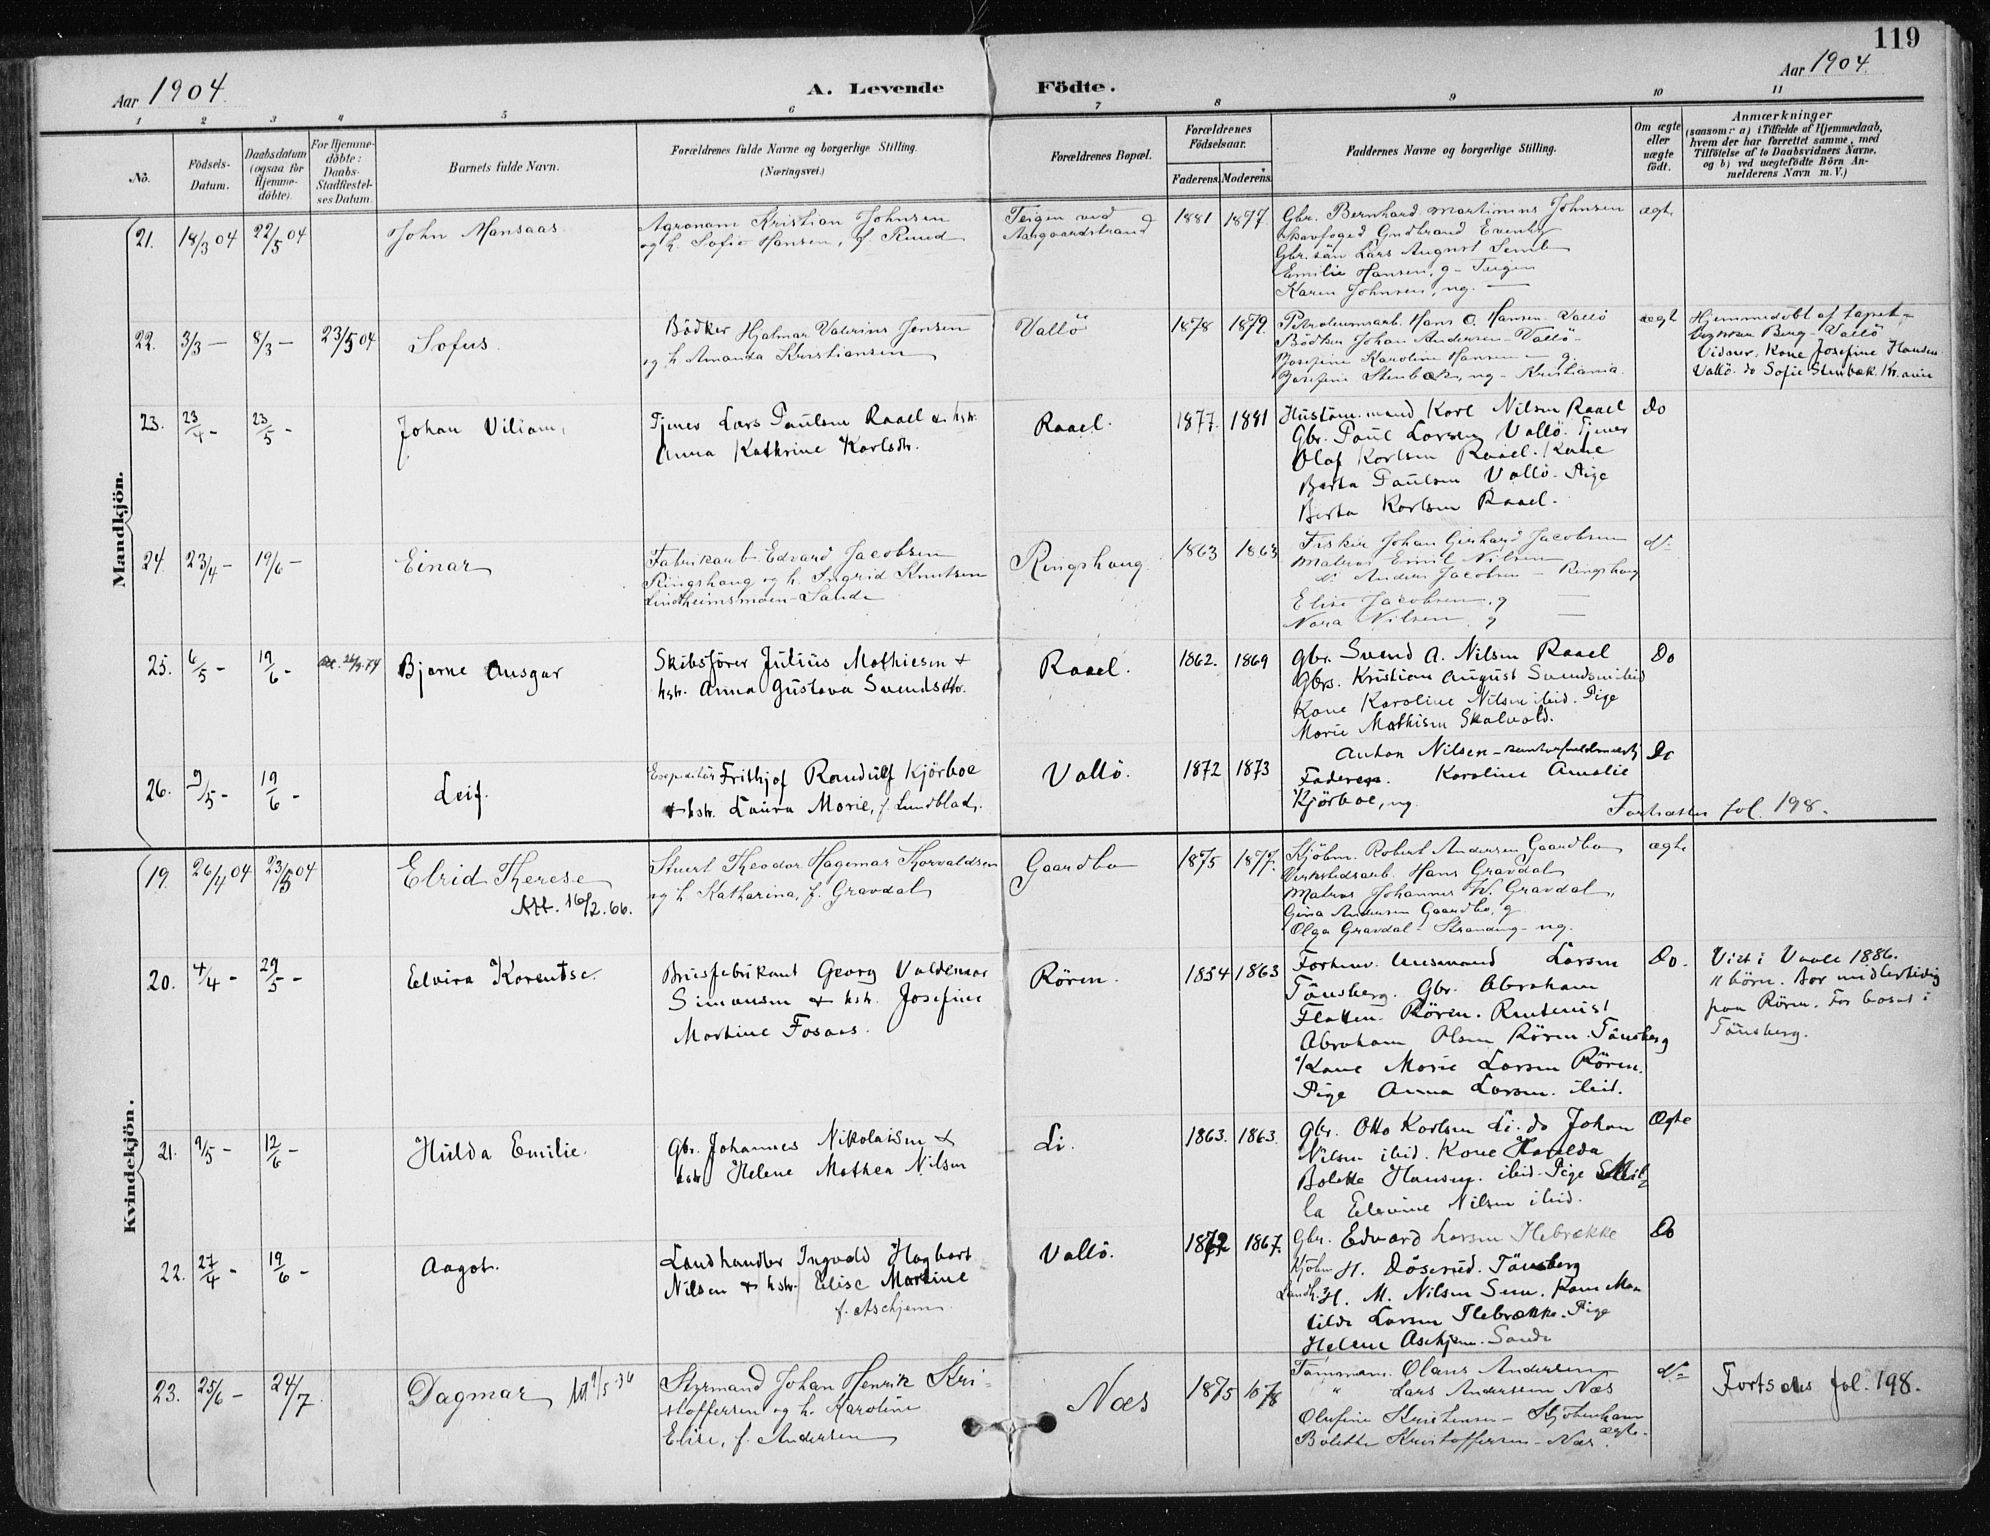 119
Aar 1904.
A. Levende Födte.
Aar 1904.
1 2 3 4 5 6 7 8 9 10 11
No.
Födsels-
Datum.
Daabsdatum
(ogsaa for
Hjemme-
döbte).
For Hjemme-
döbte:
Daabs-
Stadfæstel-
ses Datum.
Barnets fulde Navn.
Forældrenes fulde Navne og borgerlige Stilling.
(Næringsvei.)
Forældrenes Bopæl.
Forældrenes
Födselsaar.
Faderens. Moderens.
Faddernes Navne og borgerlige Stilling.
Om ægte
eller
uægte
födt.
Anmærkninger
(saasom: a) i Tilfælde af Hjemmedaab,
hvem der har forrettet samme, med
Tilföielse af to Daabsvidners Navne,
og b) ved uægtefödte Börn An-
melderens Navn m. V.)
Mandkjön.
21. 18/3 04 22/5 04 John Mansaas
Agronom Kristian Johnsen
og h. Sofie Hansen, f. Ruud
Teigen ved
Aasgaardstrand
1881 1877.
Gbr. Bernhard Martinius Johnsen
Skovfoged Gudbrand Evenby
Gbr. sön Lars August Semb
Emilie Hansen, g - Teigen
Karen Johnsen, ug. —
ægte
22. 3/3 — 8/3 — 23/5 04 Sofus.
Bödker Hjalmar Valerius Jensen
og h. Amanda Kristiansen
Vallö
1878 1879.
Petroleumsarb. Hans O. Hansen - Vallö
Bödker Johan Andersen - Vallö -
Josefine Karoline Hansen — g.
Josefine Stenbæk, ug - Kristiania.
ægte
Hjemmedöbt af
Berg - Vallö
Vidner. Kone Josefine Hansen
Vallö. do Sofie Stenbæk. Kr.ania
23. 23/4 - 23/5 - Johan Viliam,
Tjener Lars Paulsen Raael & hstr.
Anna Kathrine Karlsdtr.
Raael.
1877. 1881
Husföm. mand Karl Nilsen Raael
Gbr. Paul Larsen Vallö. Tjener
Olaf Karlsen Raael. Kone
Berta Paulsen Vallö. Pige
Berta Karlsen Raael.
Do
24. 23/4 - 19/6 - Einar
Fabrikarb. Edvard Jacobsen
Ringshaug og h. Ingrid Knutsen
Lindheimsmoen - Sande
Ringshaug
1863 1863
Fisker Johan Gerhard Jacobsen
Matros Emil Nilsen
d. Anders Jacobsen - Ringshaug
Elise Jacobsen, g —
Nora Nilsen, g —
25. 6/5 - 19/6 - Bjarne Ansgar
Skibsförer Julius Mathiesen &
hstr. Anna Gustava Svendsdtr.
Raael.
1862. 1869
Gbr. Svend A. Nilsen Raael
Gbrs. Kristian August Svendsen ibid
Kone Karoline Nilsen ibid. Pige
Marie Mathisen Skalvold.
Do
26. 9/5 - 19/6 - Leif.
Expeditör Frithjof Randulf Kjörboe
& hstr. Laura Marie, f. Lundblad.
Vallö.
1872 1873
Anton Nilsen -
Faderen. Karoline Amalie
Kjörboe, ug.
Do
Fortsættes fol. 198.
Kvindekjön.
19. 26/4 04 23/5 04 Elrid Therese
Att. 16/2. 66.
Stuert Theodor Hagemar Thorvaldsen
og h. Katharina, f. Gravdal
Gaardbo
1875 1877.
Kjöbm. Robert Andersen Gaardbo
Verkstedsarb. Hans Gravdal
Matros Johannes W. Gravdal,
Gina Andersen Gaardbo, g.
Olga Gravdal - - ug.
ægte
20. 4/4 - 29/5 - Elvira Karentse.
Brusfabrikant Georg Valdemar
Simonsen & hstr. Josefine
Martine Fosaas.
Rören.
1854 1863
Larsen
Tönsberg. Gbr. Abraham
Flatten. Rören. Rentenist
Abraham Olsen Rören. Tönsberg
Kone Marie Larsen Rören.
Pige Anna Larsen. ibid.
Do.
Viet i Vaale 1886.
11 börn. Bor midlertidig
paa Rören. För bosat i
Tönsberg.
21. 9/5 - 12/6 - Hilda Emilie.
Gbr. Johannes Nikolaisen &
hstr Helene Mathea Nilsen
Li.
1863. 1863.
Gbr. Otto Karlsen Li. do Johan
Nilsen ibid. Kone
Bolette Hansen. ibid. Pige
la Edevine Nilsen ibid.
Ægte
22. 27/4 - 19/6 - Aagot.
Landhandler Ingvald Hagbart
Nilsen & hstr. Elise Martine
f. Aschjem.
Vallö.
1867.
Gbr. Edvard Larsen Ilebrække
Kjöbm H. Döserud. Tönsberg
Landh. H. M. Nilsen Sem. Kone Ma-
tilde Larsen Ilebrække. Pige
Helene Aschjem. Sande
Do
23. 25/6 - 24/7 Dagmar
Styrmand Johan Henrik Kri-
stoffersen og h. Karoline
Elise, f. Andersen
Næs
1875 1878
Tömmerm. Olaus Andersen
" Lars Andersen Næs
Olufine Kristensen - Kjöbenhavn
Bolette Kristoffersen - Næs.
Fortsættes fol. 198.